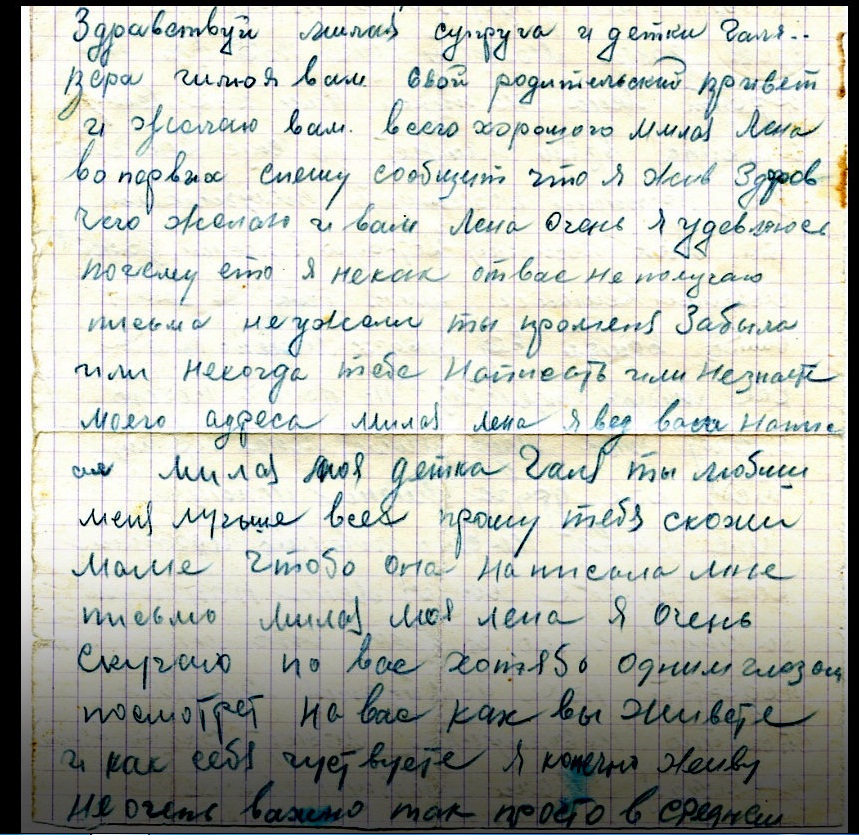 Здравствуй милая супруга и детки Галя..
Вера шлю я вам свой родительский привет
и желаю вам всего хорошого милая Лена
во первых спешу сообщит что я жив здров
чего желаю и вам Лена очень я удевляюсь
почему ето я некак от вас не получаю
письма неужели ты променя забыла
или некогда тебе написать или незнаете
моего адреса милая лена я вед вам напис
ал милая моя детка Галя ты любиш
меня лучьше всех прошу тебя скажи
маме чтобо она написала мне
письмо милая моя лена я очень
скучаю по вас хотябо одним глазом
посмотрет на вас как вы живете
и как себя чуствуете я конечно живу
не очень важно так просто в среднем